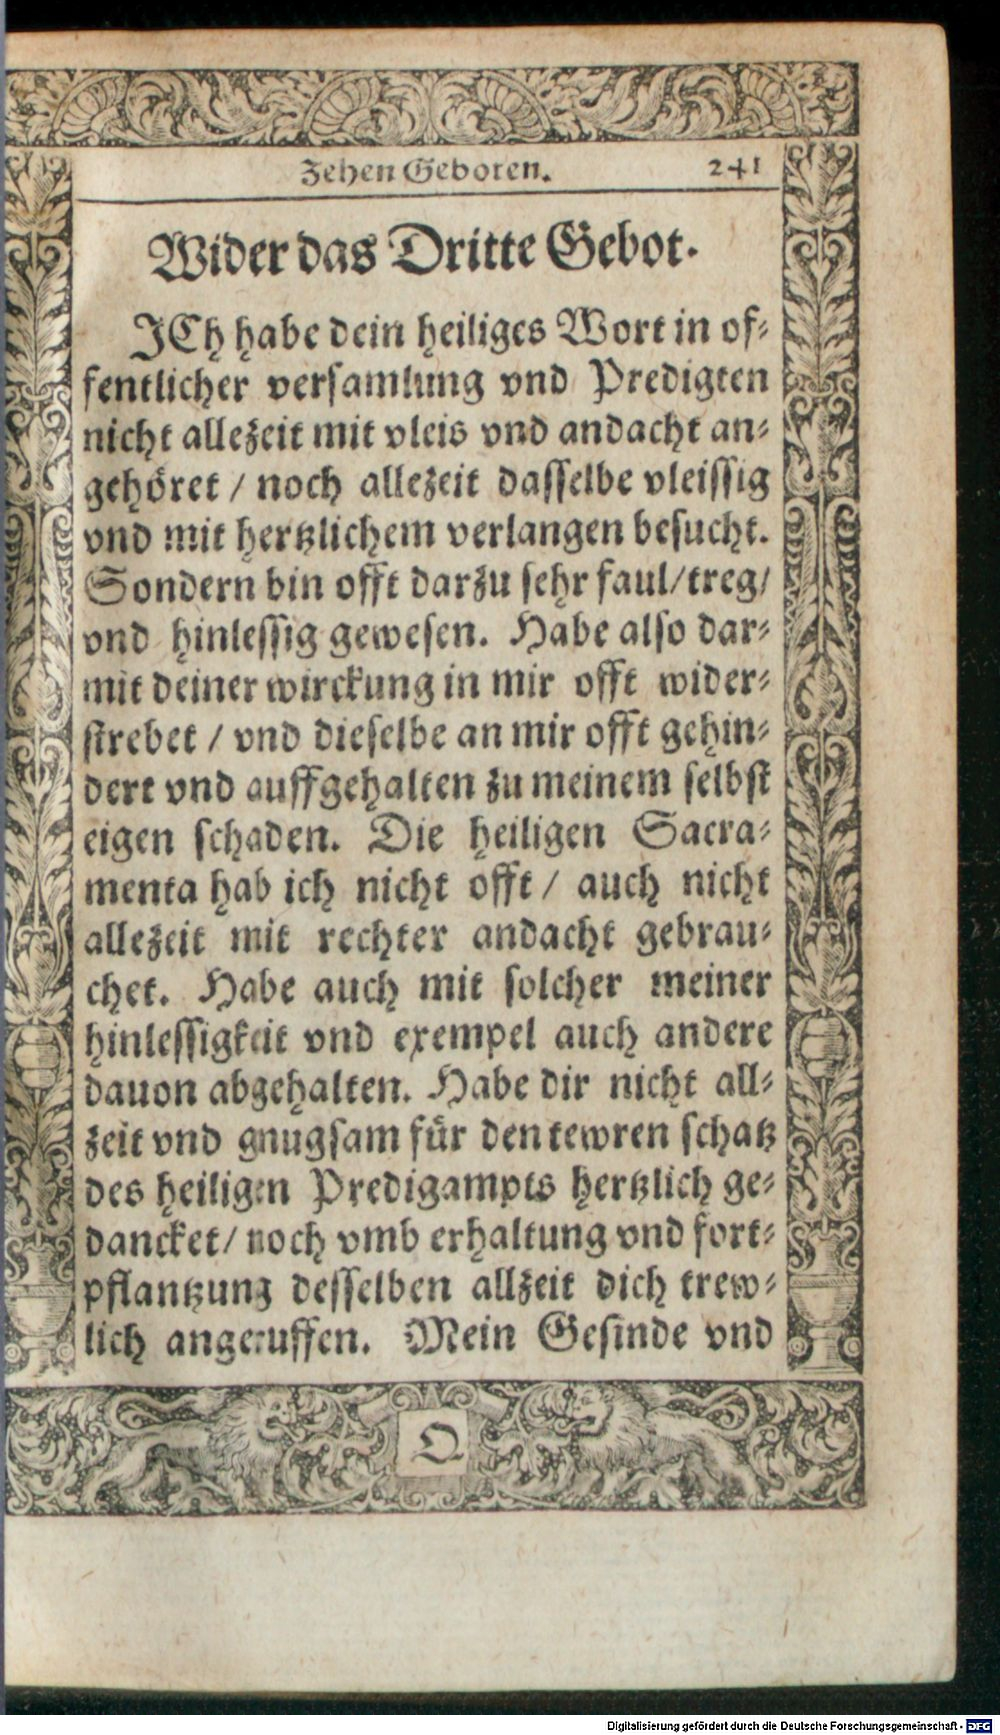 Zehen Geboten. 241
Wider das Dritte Gebot.
ICh habe dein heiliges Wort in of-
fentlicher versamlung vnd Predigten
nicht allezeit mit vleis vnd andacht an-
gehöret / noch allezeit dasselbe vleissig
vnd mit hertzlichem verlangen besucht.
Sondern bin offt darzu sehr faul/treg/
vnd hinlessig gewesen. Habe also dar-
mit deiner wirckung in mir offt wider-
strebet / vnd dieselbe an mir offt gehin-
dert vnd auffgehalten zu meinem selbst
eigen schaden. Die heiligen Sacra-
menta hab ich nicht offt / auch nicht
allezeit mit rechter andacht gebrau-
chet. Habe auch mit solcher meiner
hinlessigkeit vnd exempel auch andere
dauon abgehalten. Habe dir nicht all-
zeit vnd gnugsam für den tewren schatz
des heiligen Predigampts hertzlich ge-
dancket/ noch vmb erhaltung vnd fort-
pflantzung desselben allzeit dich trew-
lich angeruffen. Mein Gesinde vnd
Q
Digitalisierung gefördert durch die Deutsche Forschungsgemeinschaft - DFG